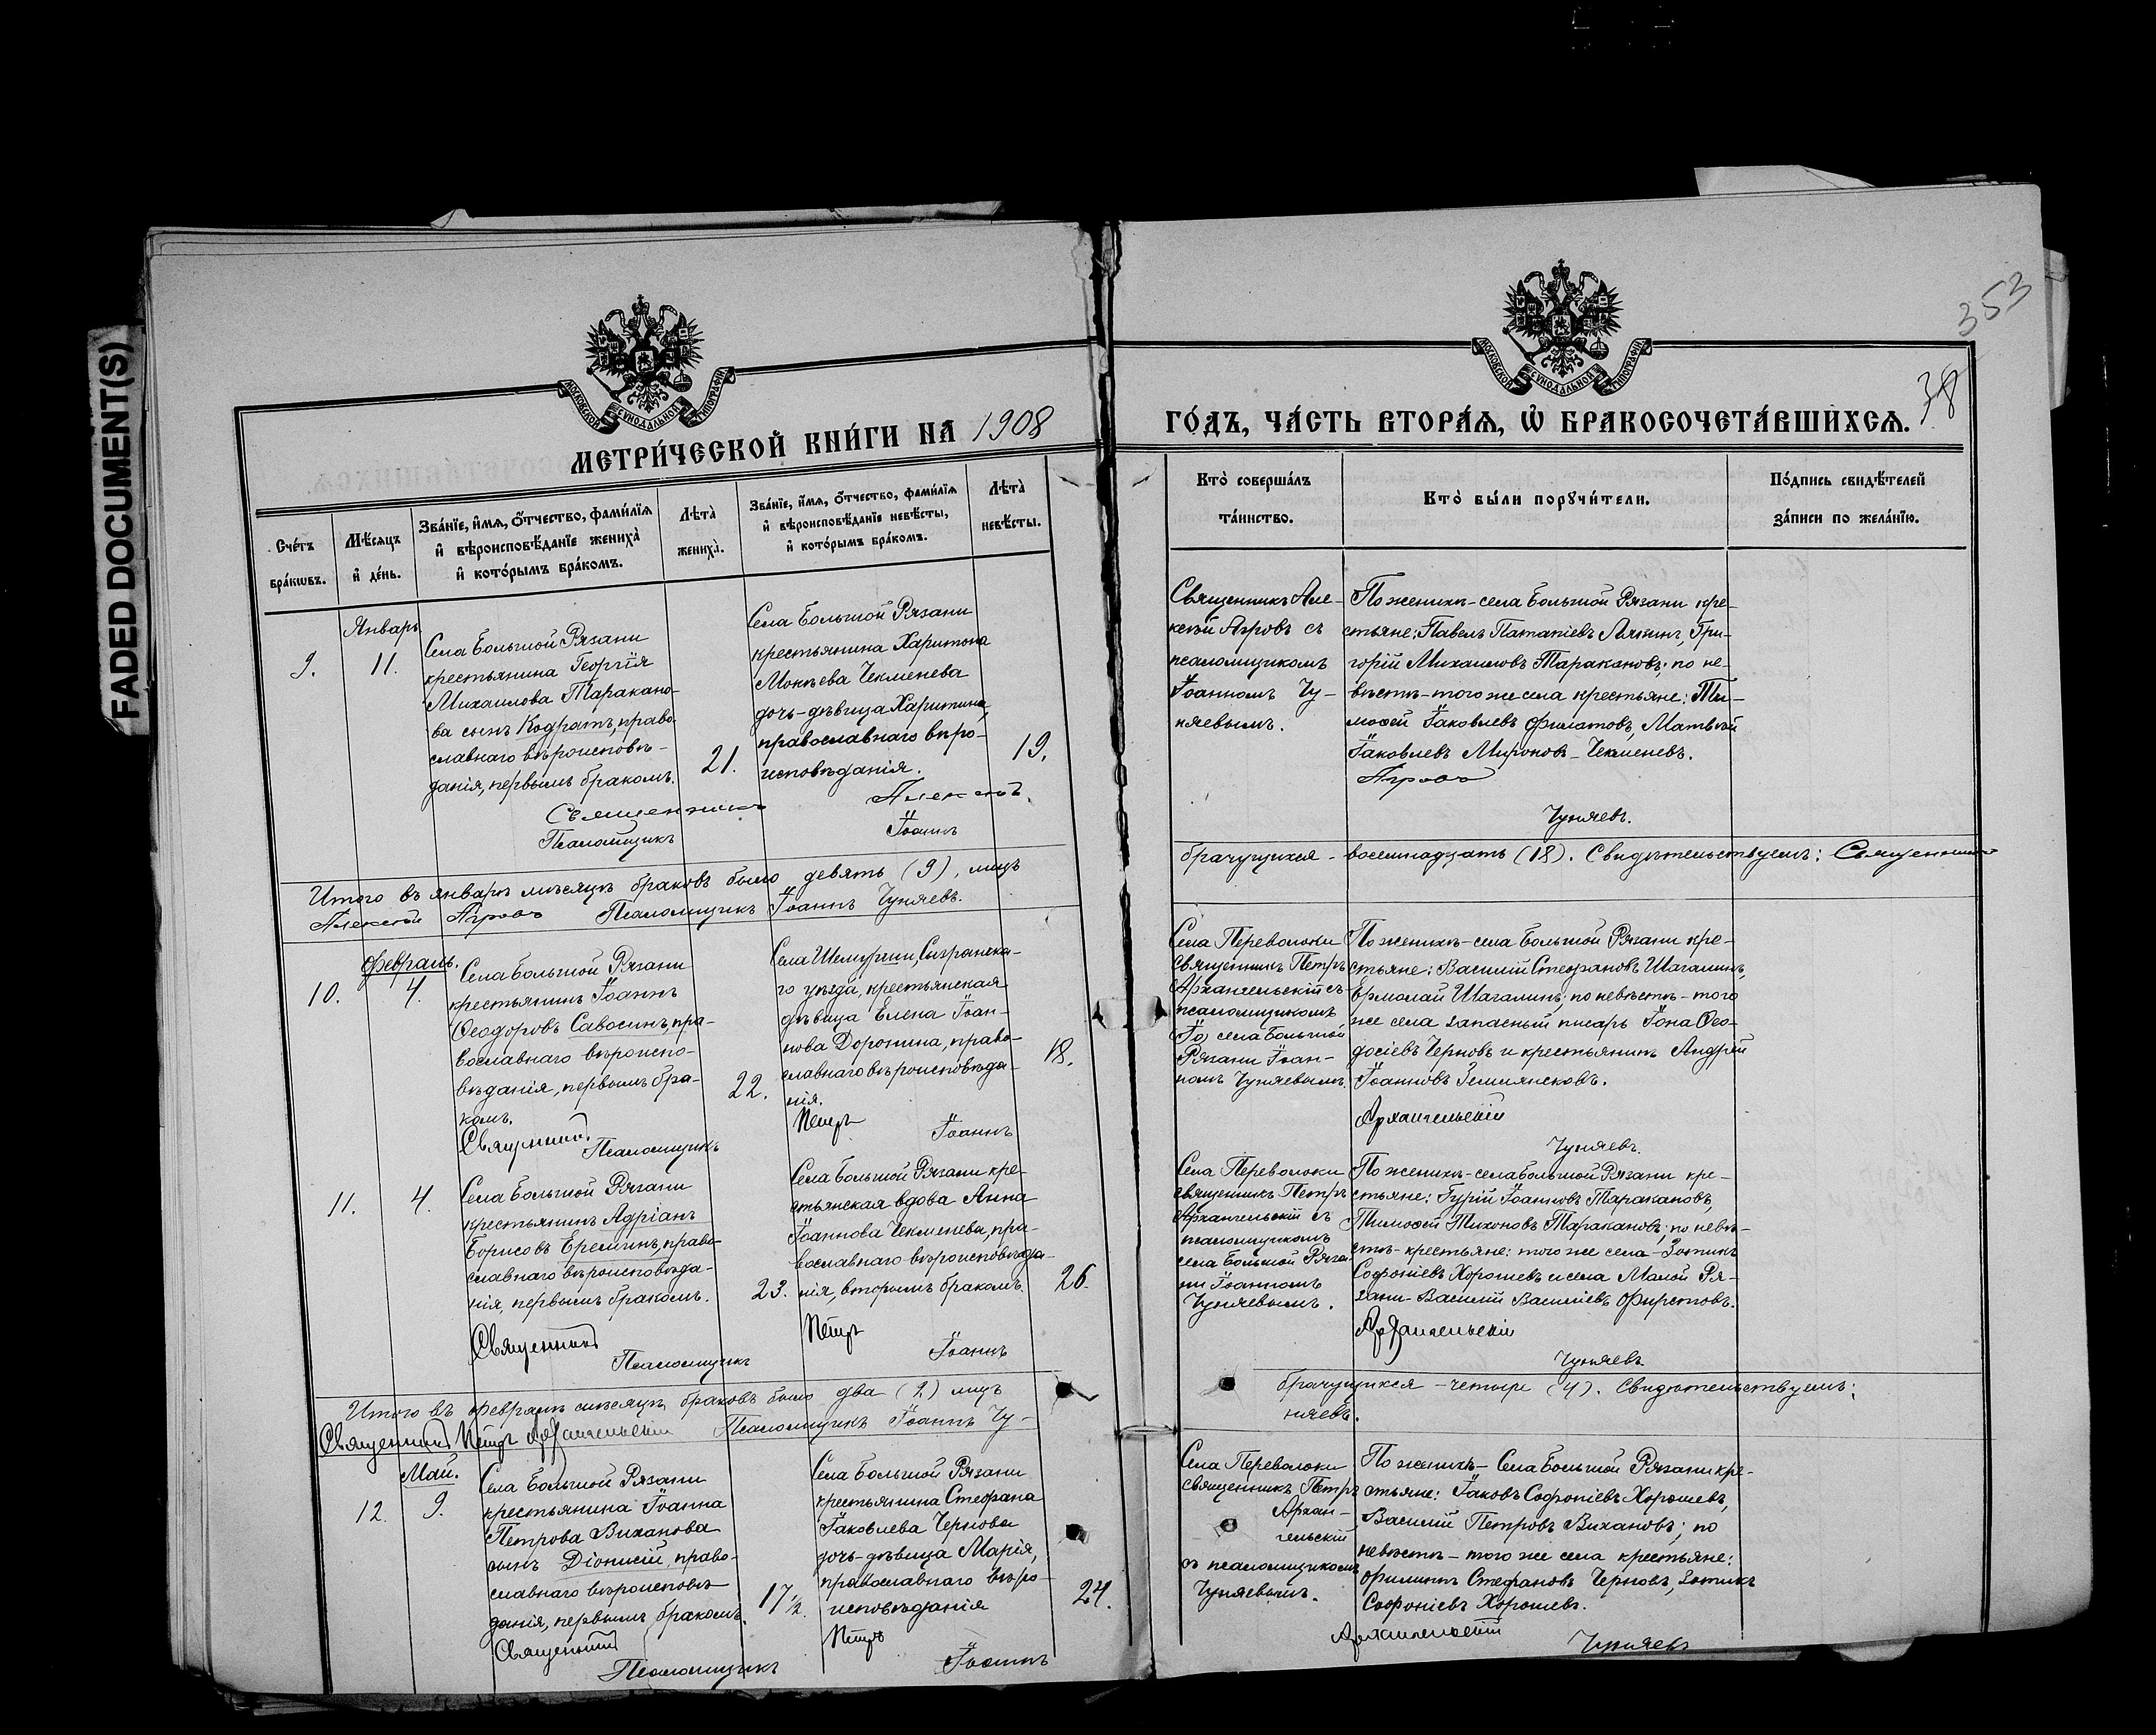 FADED DOCUMENT(S)
353
38
МОСКОВСКОЙ СѴНОДАЛЬНОЙ ТИПОГРАФІИ
МОСКОВСКОЙ СѴНОДАЛЬНОЙ ТИПОГРАФІИ
МЕТРИ́ЧЕСКОЙ КНИ́ГИ НА 1908
ГО́ДЪ, ЧА́СТЬ ВТОРА́Ѧ, Ѽ БРАКОСОЧЕТА́ВШИХСѦ.
Сче́тъ
бра́кѡвъ.
Мѣ́сѧцъ
и҆ де́нь.
Зва́нїе, и҆́мѧ, о҆́тчество, фами́лїѧ
и҆ вѣроисповѣ́данїе жениха̀
и҆ кото́рымъ бра́комъ.
Лѣта̀
жениха̀.
Зва́нїе, и҆́мѧ, о҆́тчество, фами́лїѧ
и҆ вѣроисповѣ́данїе невѣ́сты,
и҆ кото́рымъ бра́комъ.
Лѣта̀
невѣ́сты.
Кто̀ соверша́лъ
та́инство.
Кто̀ бы́ли порꙋчи́тели.
По́дпись свидѣ́телей
за́писи по жела́нїю.
9.
Январь
11.
Села Большой Рязани
крестьянина Георгія
Михаилова Таракано-
ва сынъ Кодратъ, право-
славнаго вѣроисповѣ-
данія, первымъ бракомъ.
21.
Села Большой Рязани
крестьянина Харитона
Мокѣева Чекменева
дочь-дѣвица Харитина,
православнаго вѣро-
исповѣданія.
19.
Священникъ Але-
ксѣй Агровъ съ
псаломщикомъ
Іоанномъ Чу-
няевымъ.
По женихѣ-села Большой Рязани кре-
стьяне: Павелъ Потапіевъ Лякинъ, Гри-
горій Михаиловъ Таракановъ; по не-
вѣстѣ-того же села крестьяне: Ти-
моѳей Іаковлевъ Филатовъ, Матѳей
Іаковлевъ Мироновъ-Чекменевъ.
Священникъ Алексѣй Агровъ
Псаломщикъ Іоаннъ Чуняевъ.
Итого въ январѣ мѣсяцѣ браковъ было девять (9), лицъ
брачущихся - восемнадцать (18). Свидѣтельствуемъ: Священникъ
Алексѣй Агровъ Псаломщикъ Іоаннъ Чуняевъ.
10.
Февраль.
4.
Села Большой Рязани
крестьянинъ Іоаннъ
Ѳеодоровъ Савосинъ, пра-
вославнаго вѣроиспо-
вѣданія, первымъ бра-
комъ.
22.
Села Шемурши, Сызранска-
го уѣзда, крестьянская
дѣвица Елена Іоан-
нова Доронина, право-
славнаго вѣроисповѣда-
нія.
18.
Села Переволоки
священникъ Петръ
Архангельскій съ
псаломщикомъ
села Большой
Рязани Іоан-
номъ Чуняевымъ.
По женихѣ-села Большой Рязани кре-
стьяне: Василій Стефановъ Шагалинъ,
Ермолай Шагалинъ; по невѣстѣ-того
же села запасный писарь Іона Ѳео-
досіевъ Черновъ и крестьянинъ Андрей
Іоанновъ Земляносковъ.
Священникъ Петръ Архангельскій
Псаломщикъ Іоаннъ Чуняевъ.
11.
4.
Села Большой Рязани
крестьянинъ Адріанъ
Борисовъ Ереминъ, право-
славнаго вѣроисповѣда-
нія, первымъ бракомъ.
23.
Села Большой Рязани кре-
стьянская вдова Анна
Іоаннова Чекменева, пра-
вославнаго вѣроисповѣда-
нія, вторымъ бракомъ.
26.
Села Переволоки
священникъ Петръ
Архангельскій съ
псаломщикомъ
села Большой Ряза-
ни Іоанномъ
Чуняевымъ.
По женихѣ-села Большой Рязани кре-
стьяне: Гурій Іоанновъ Таракановъ,
Тимоѳей Тихоновъ Таракановъ; по невѣ-
стѣ-крестьяне: того же села-Зотикъ
Софоніевъ Хорошевъ и села Малой Ря-
зани-Василій Василіевъ Фирстовъ.
Священникъ Петръ Архангельскій
Псаломщикъ Іоаннъ Чуняевъ
Итого въ февралѣ мѣсяцѣ браковъ было два (2) лицъ
брачущихся - четыре (4). Свидѣтельствуемъ:
Священникъ Петръ Архангельскій Псаломщикъ Іоаннъ Чу-
няевъ.
12.
Май.
9.
Села Большой Рязани
крестьянина Іоанна
Петрова Виханова
сынъ Діонисій, право-
славнаго вѣроисповѣ-
данія, первымъ бракомъ.
17 1/2.
Села Большой Рязани
крестьянина Стефана
Іаковлева Чернова
дочь-дѣвица Марія,
православнаго вѣро-
исповѣданія
24.
Села Переволоки
священникъ Петръ
Архан-
гельскій
съ псаломщикомъ
Чуняевымъ.
По женихѣ-Села Большой Рязани кре-
стьяне: Іаковъ Софоніевъ Хорошевъ,
Василій Петровъ Вихановъ; по
невѣстѣ-того же села крестьяне:
Филиппъ Стефановъ Черновъ, Зотикъ
Софоніевъ Хорошевъ.
Священникъ Петръ Архангельскій
Псаломщикъ Іоаннъ Чуняевъ